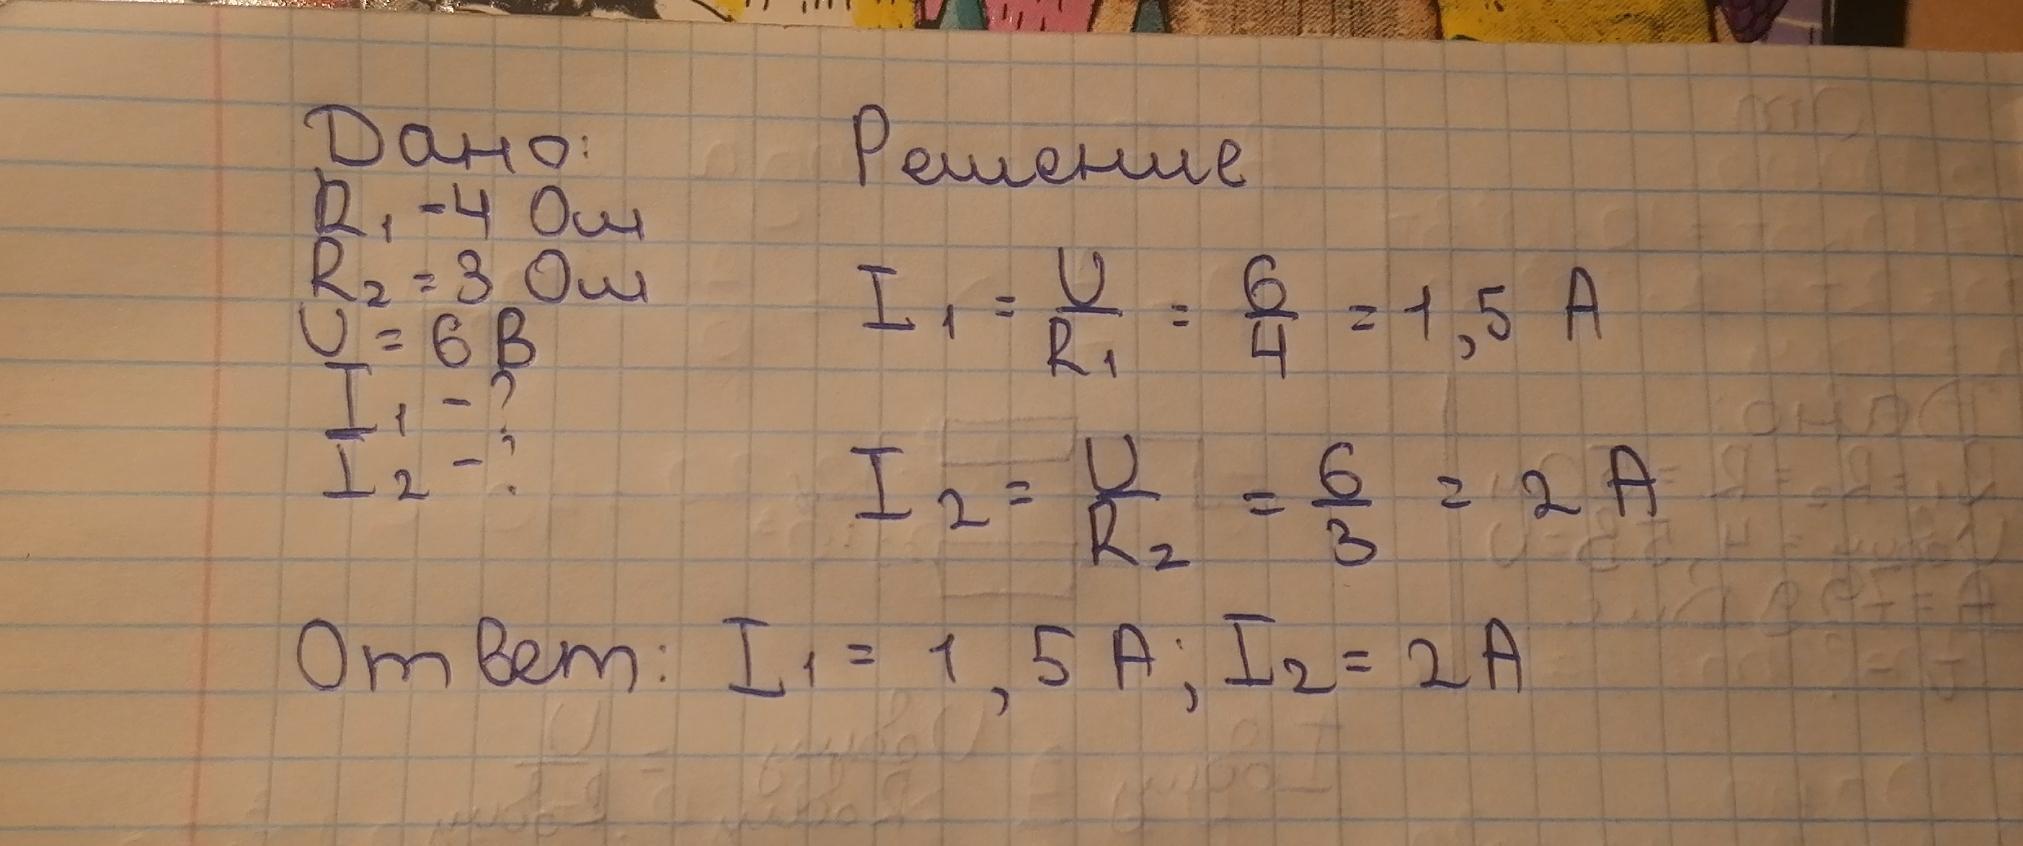 Дано:
R₁ - 4 Ом
R₂ = 3 Ом
U = 6 В
I₁ - ?
I₂ - ?
Решение
I₁ = U/R₁ = 6/4 = 1,5 А
I₂ = U/R₂ = 6/3 = 2 А
Ответ: I₁ = 1,5 А; I₂ = 2 А